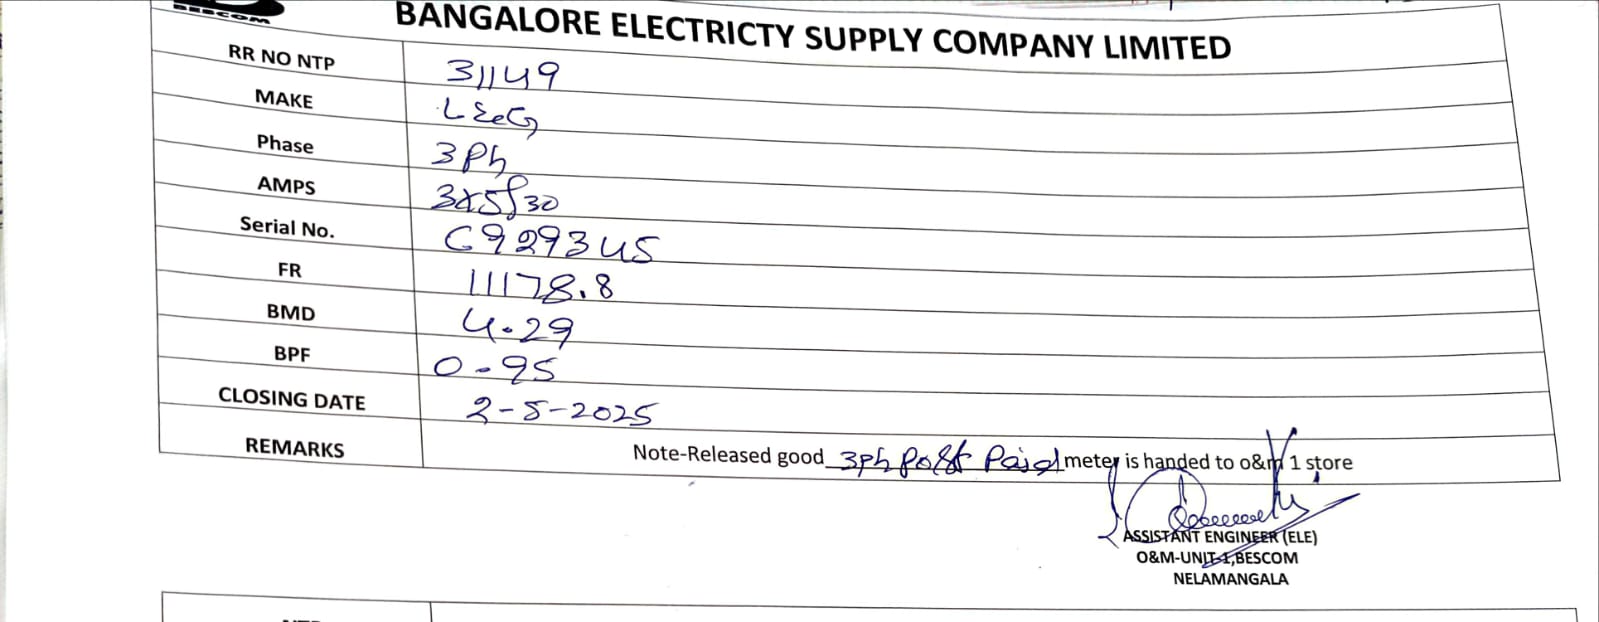 BESCOM
BANGALORE ELECTRICTY SUPPLY COMPANY LIMITED
RR NO NTP 31149
MAKE L&G
Phase 3Ph
AMPS 3x5/30
Serial No. G929345
FR 11178.8
BMD 4.29
BPF 0-95
CLOSING DATE 2-5-2025
REMARKS Note-Released good 3ph Post Paid meter is handed to o&m 1 store
ASSISTANT ENGINEER (ELE)
O&M-UNIT-1,BESCOM
NELAMANGALA